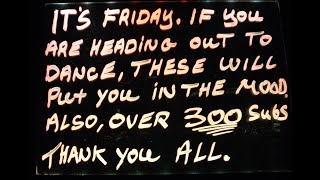 IT'S FRIDAY. IF YOU
ARE HEADING OUT TO
DANCE, THESE WILL
PUT YOU IN THE MOOD.
ALSO, OVER 300 SUBS
THANK YOU ALL.